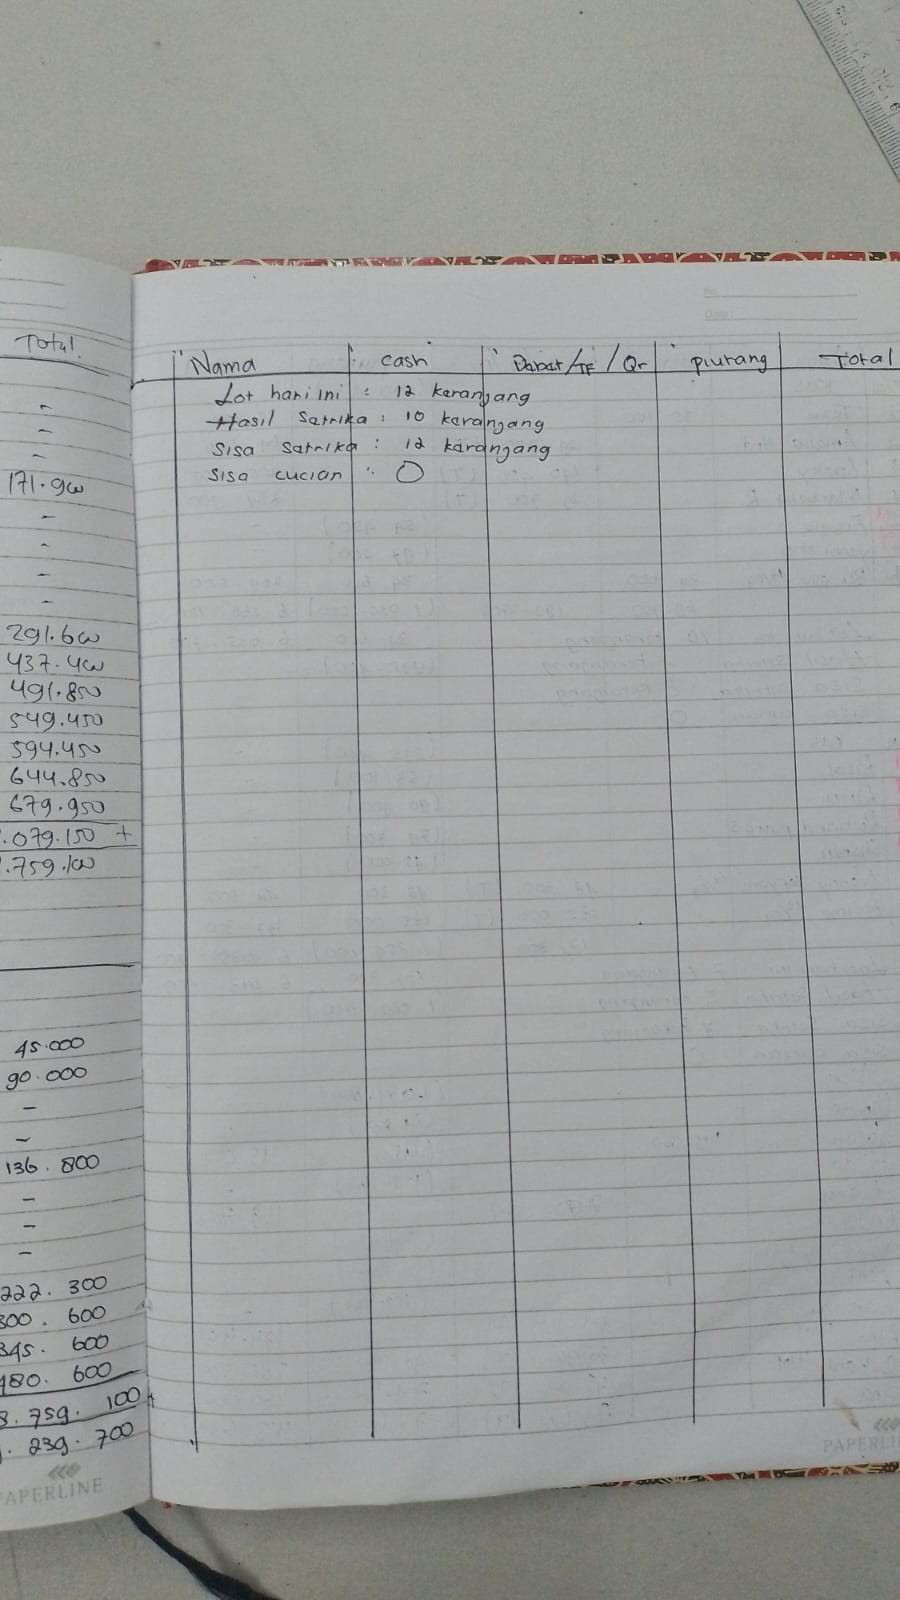 Total.
-
-
-
171.900
-
-
-
-
291.600
437.400
491.850
549.450
594.450
644.850
679.950
.079.150 +
.759.100
45.000
90.000
-
-
136.800
-
-
-
222.300
300.600
345.600
480.600
3.759.100 +
.239.700
PAPERLINE
No.
Date.
Nama cash Debet/TF/Qr piutang Total
Lot hari ini : 12 keranjang
Hasil Satrika : 10 keranjang
Sisa Satrika : 12 karanjang
Sisa cucian : 0
PAPERLI